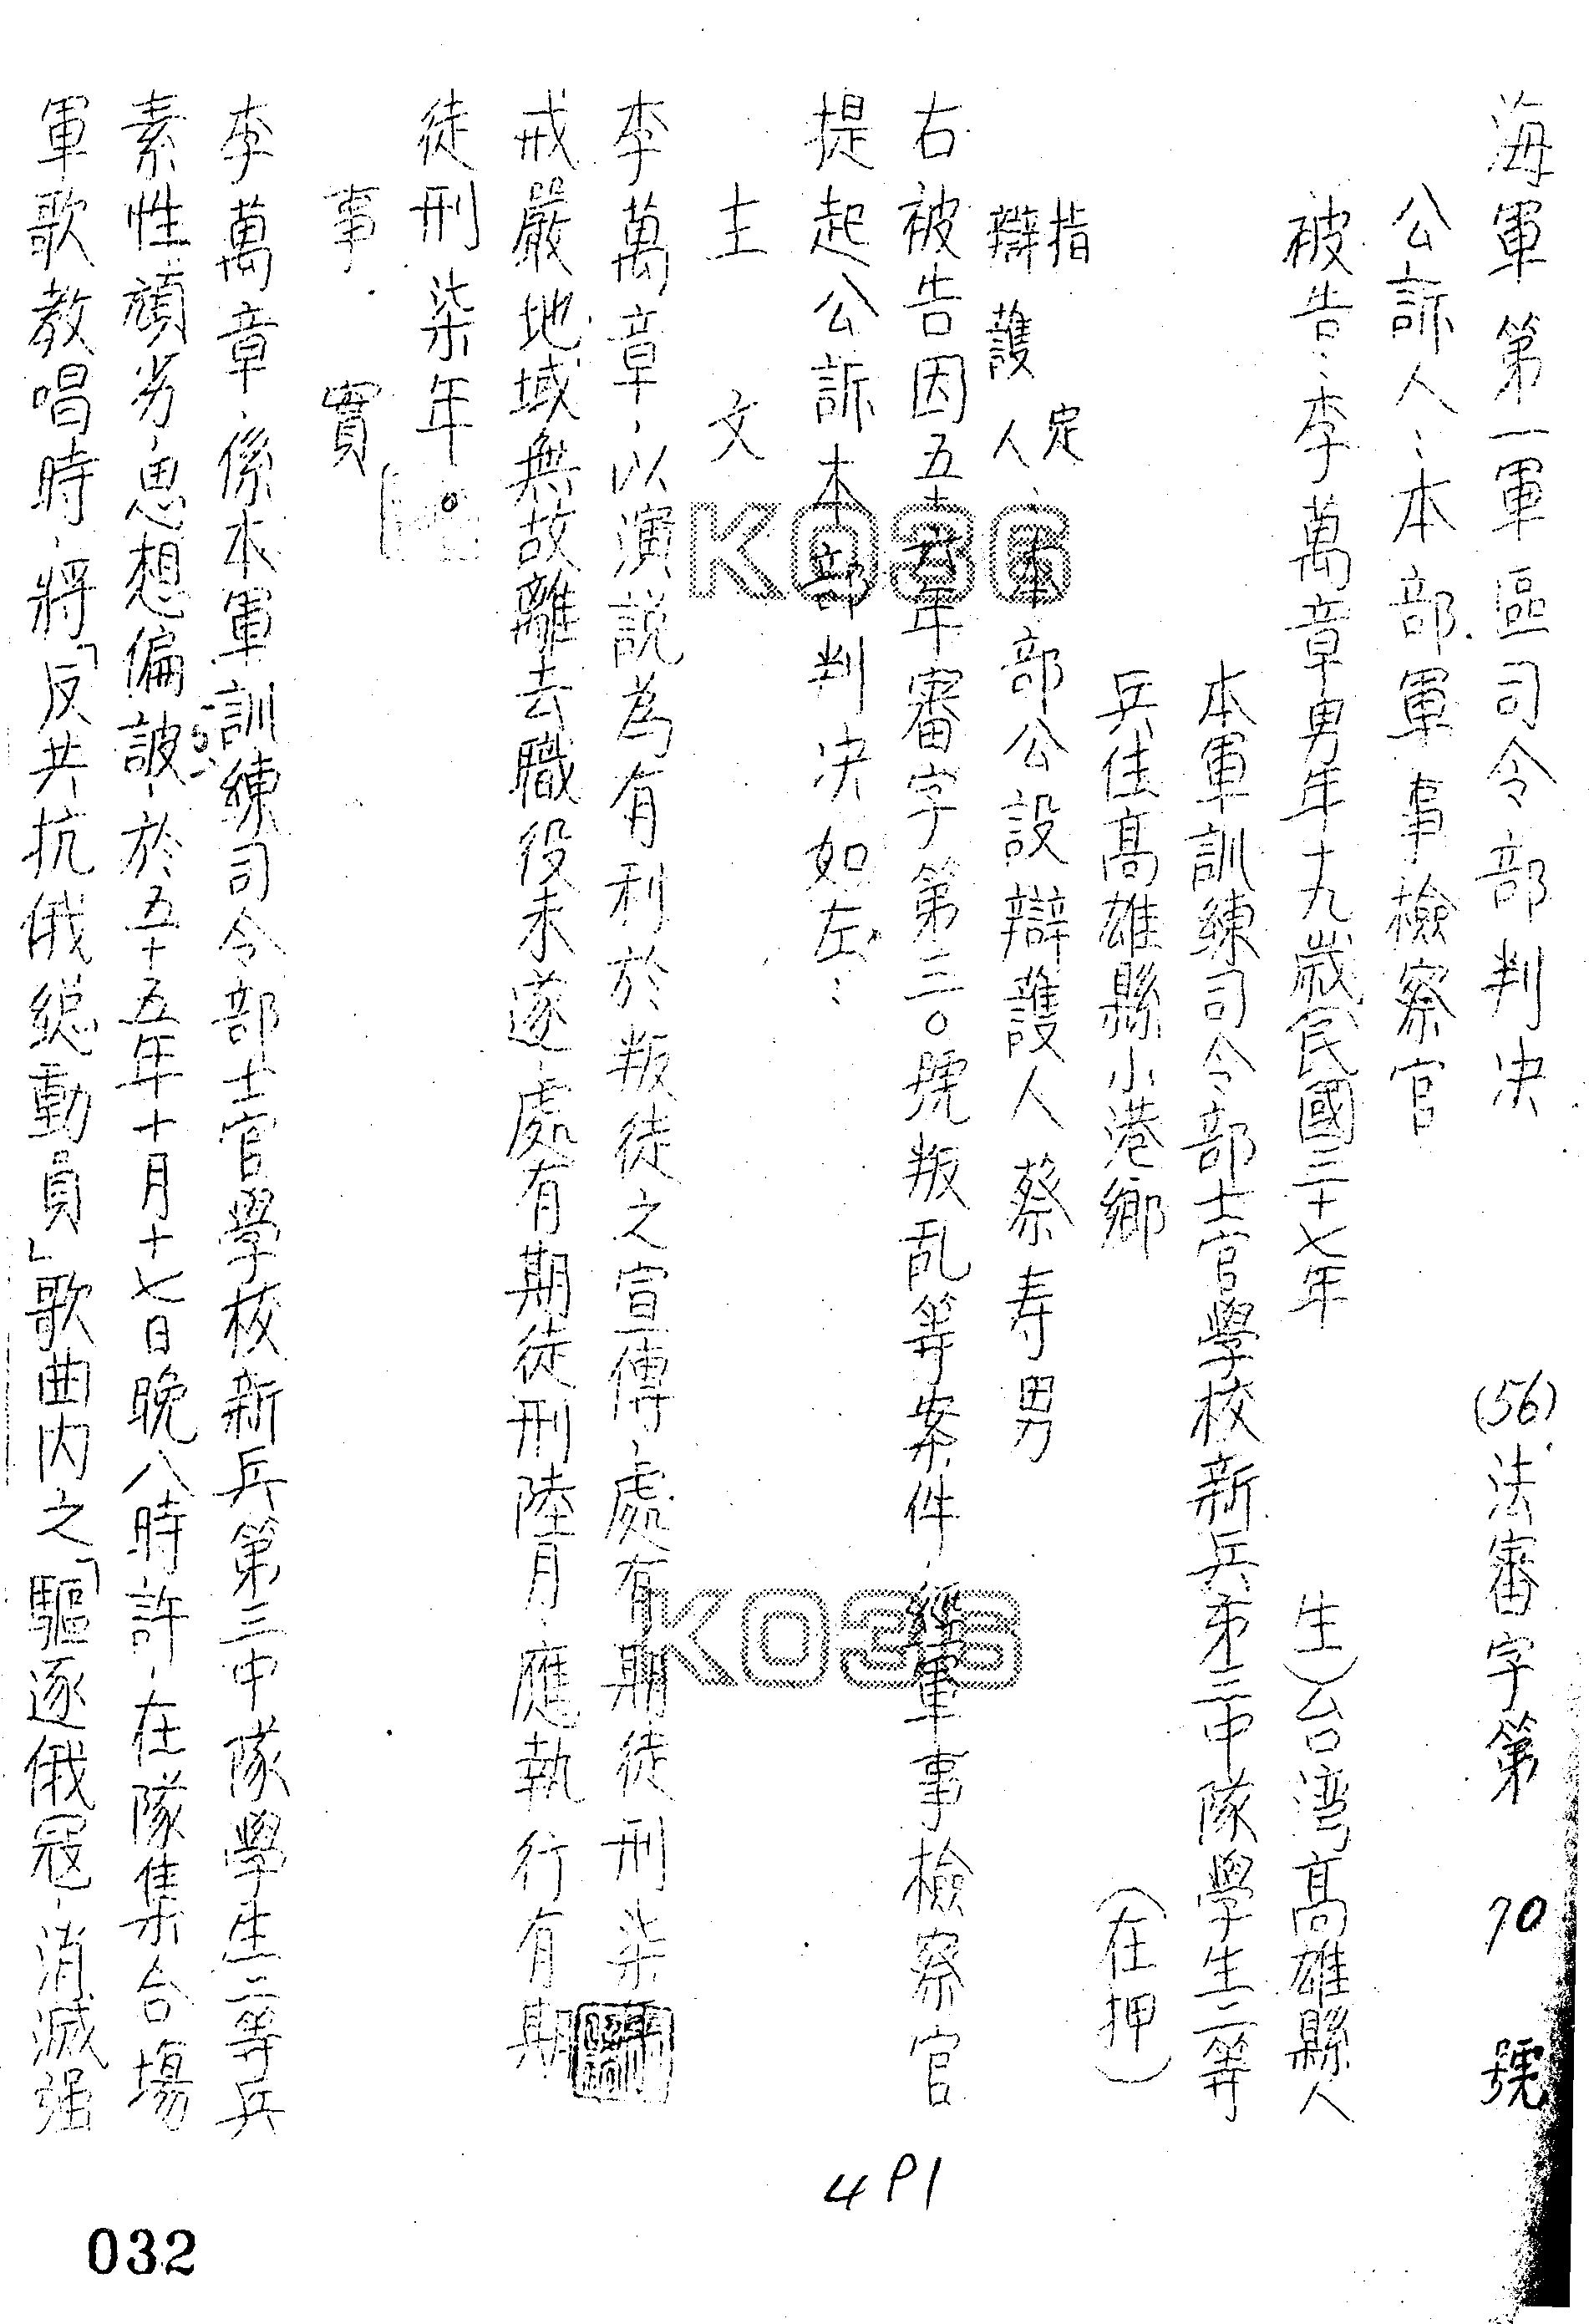 海軍第一軍區司令部判決 (56)法審字第 70 號
公訴人：本部軍事檢察官
被告：李萬章男年十九歲民國三十七年 生)台湾高雄縣人
本軍訓練司令部士官學校新兵第三中隊學生二等
兵住高雄縣小港鄉 (在押)
指定
辯護人：本部公設辯護人蔡寿男
右被告因五十六年審字第三〇號叛乱等案件，經軍事檢察官
提起公訴本部判決如左：
主文
李萬章，以演説為有利於叛徒之宣傳，處有期徒刑柒年
戒嚴地域無故離去職役未遂，處有期徒刑陸月，應執行有期
徒刑柒年。
事實
李萬章，係本軍訓練司令部士官學校新兵第三中隊學生二等兵
素性頑劣，思想偏詖，於五十五年十月十七日晚八時許，在隊集合場
軍歌教唱時，將「反共抗俄総動員」歌曲内之「驅逐俄寇，消滅强
K036
K036
4 P1
032